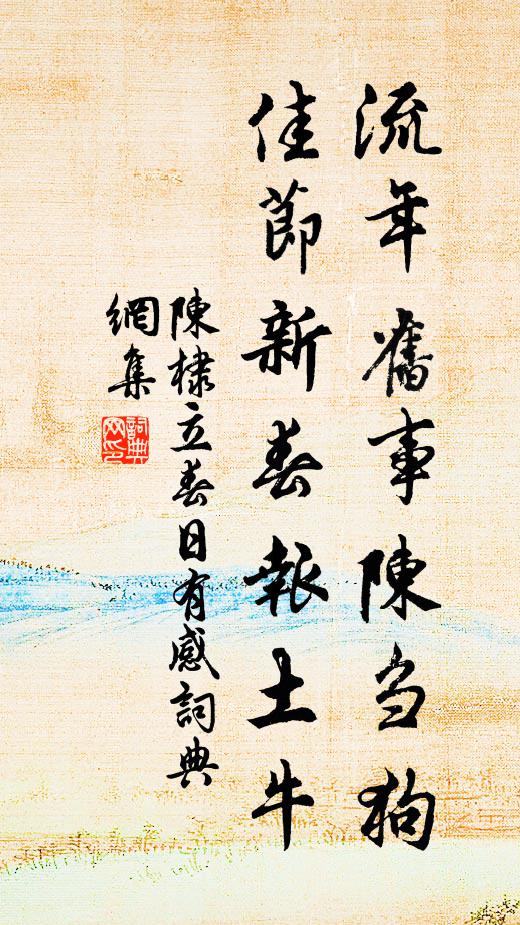 流年舊事陳刍狗
佳節新春報土牛
陳棣立春日有感詞典
網集
詞典
网印